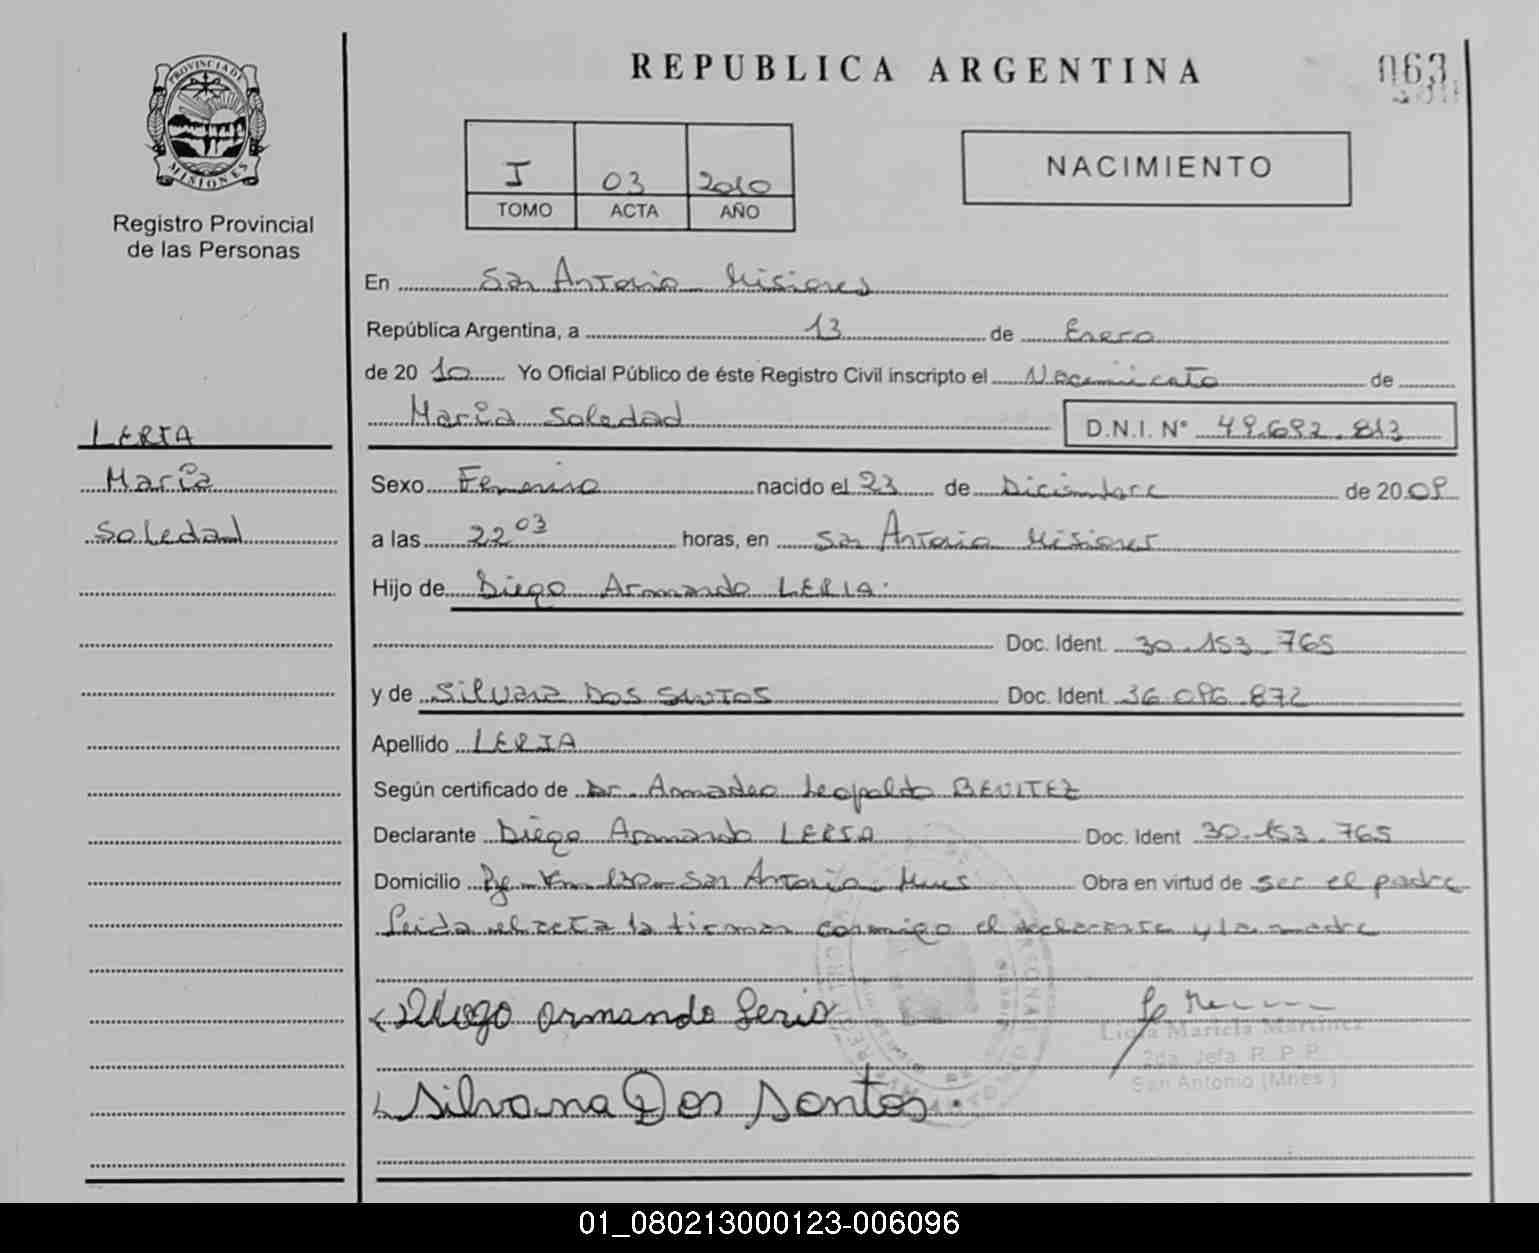 REPUBLICA ARGENTINA
063
PROVINCIA DE
MISIONES
Registro Provincial
de las Personas
I 03 2010
TOMO ACTA AÑO
NACIMIENTO
En San Antonio Misiones
República Argentina, a 13 de Enero
de 20 10 Yo Oficial Público de éste Registro Civil inscripto el Nacimiento de
María Soledad D.N.I. N° 49.692.813
LERIA
María
Soledad
Sexo Femenino nacido el 23 de Diciembre de 20 09
a las 22 03 horas, en San Antonio Misiones
Hijo de Diego Armando LERIA
Doc. Ident. 30.153.765
y de Silvana DOS SANTOS Doc. Ident. 36.096.872
Apellido LERIA
Según certificado de Dr. Armadeo Leopoldo BENITEZ
Declarante Diego Armando LERIA Doc. Ident 30.153.765
Domicilio Km 130 San Antonio Mnes Obra en virtud de ser el padre
Leida el acta la firman conmigo el declarante y la madre
Diego Armando Leria
Ligia Mariela Martinez
2da. Jefa R. P. P.
San Antonio (Mnes.)
Silvana Dos Santos.
01_080213000123-006096